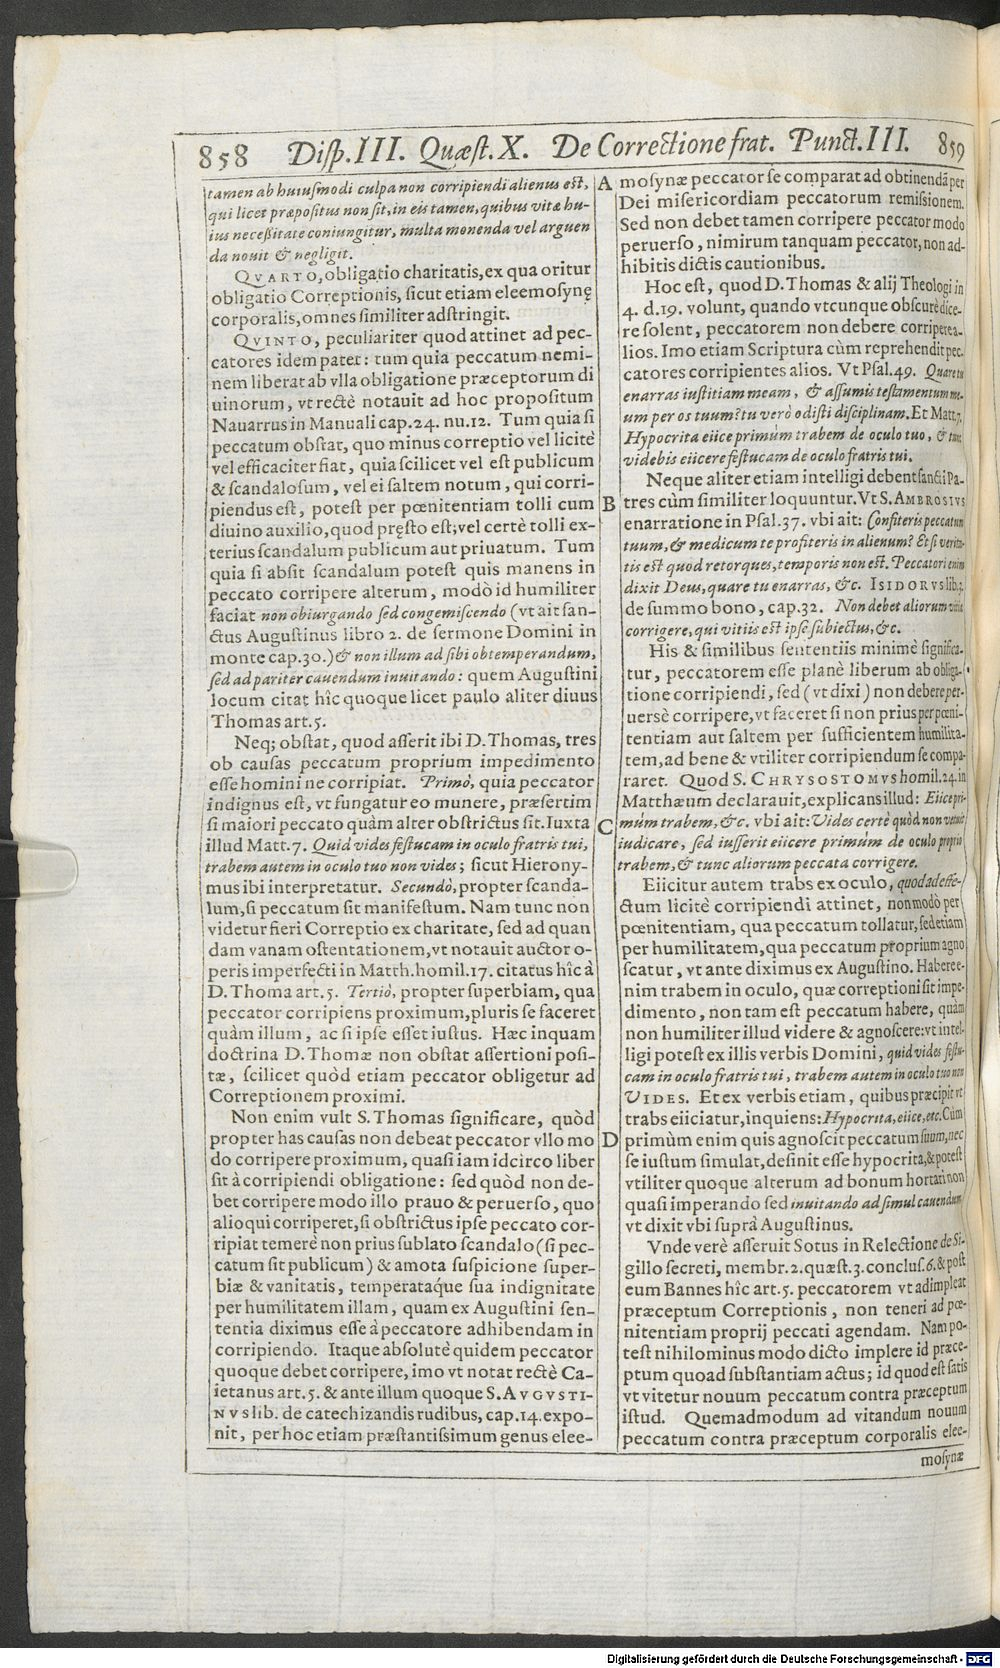 858 Disp. III. Quæst. X. De Correctione frat. Punct. III. 859
tamen ab huiusmodi culpa non corripiendi alienus est,
qui licet præpositus non sit, in eis tamen, quibus vitæ hu-
ius necessitate coniungitur, multa monenda vel arguen
da nouit & negligit.
QVARTO, obligatio charitatis, ex qua oritur
obligatio Correptionis, sicut etiam eleemosynę
corporalis, omnes similiter adstringit.
QVINTO, peculiariter quod attinet ad pec-
catores idem patet: tum quia peccatum nemi-
nem liberat ab vlla obligatione præceptorum di
uinorum, vt rectè notauit ad hoc propositum
Nauarrus in Manuali cap. 24. nu. 12. Tum quia si
peccatum obstat, quo minus correptio vel licitè
vel efficaciter fiat, quia scilicet vel est publicum
& scandalosum, vel ei saltem notum, qui corri-
piendus est, potest per pœnitentiam tolli cum
diuino auxilio, quod pręsto est; vel certè tolli ex-
terius scandalum publicum aut priuatum. Tum
quia si absit scandalum potest quis manens in
peccato corripere alterum, modò id humiliter
faciat non obiurgando sed congemiscendo (vt ait san-
ctus Augustinus libro 2. de sermone Domini in
monte cap. 30.) & non illum ad sibi obtemperandum,
sed ad pariter cauendum inuitando: quem Augustini
locum citat hîc quoque licet paulo aliter diuus
Thomas art. 5.
Neq; obstat, quod asserit ibi D. Thomas, tres
ob causas peccatum proprium impedimento
esse homini ne corripiat. Primò, quia peccator
indignus est, vt fungatur eo munere, præsertim
si maiori peccato quàm alter obstrictus sit. Iuxta
illud Matt. 7. Quid vides festucam in oculo fratris tui,
trabem autem in oculo tuo non vides; sicut Hierony-
mus ibi interpretatur. Secundò, propter scanda-
lum, si peccatum sit manifestum. Nam tunc non
videtur fieri Correptio ex charitate, sed ad quan
dam vanam ostentationem, vt notauit auctor o-
peris imperfecti in Matth. homil. 17. citatus hîc à
D. Thoma art. 5. Tertiò, propter superbiam, qua
peccator corripiens proximum, pluris se faceret
quàm illum, ac si ipse esset iustus. Hæc inquam
doctrina D. Thomæ non obstat assertioni posi-
tæ, scilicet quòd etiam peccator obligetur ad
Correptionem proximi.
Non enim vult S. Thomas significare, quòd
propter has causas non debeat peccator vllo mo
do corripere proximum, quasi iam idcirco liber
sit à corripiendi obligatione: sed quòd non de-
bet corripere modo illo prauo & peruerso, quo
alioqui corriperet, si obstrictus ipse peccato cor-
ripiat temerè non prius sublato scandalo (si pec-
catum sit publicum) & amota suspicione super-
biæ & vanitatis, temperataque sua indignitate
per humilitatem illam, quam ex Augustini sen-
tentia diximus esse à peccatore adhibendam in
corripiendo. Itaque absolutè quidem peccator
quoque debet corripere, imo vt notat rectè Ca-
ietanus art. 5. & ante illum quoque S. AVGVSTI-
NVS lib. de catechizandis rudibus, cap. 14. expo-
nit, per hoc etiam præstantissimum genus elee-
A mosynæ peccator se comparat ad obtinendā per
Dei misericordiam peccatorum remissionem.
Sed non debet tamen corripere peccator modo
peruerso, nimirum tanquam peccator, non ad-
hibitis dictis cautionibus.
Hoc est, quod D. Thomas & alij Theologi in
4. d. 19. volunt, quando vtcunque obscurè dice-
re solent, peccatorem non debere corripere a-
lios. Imo etiam Scriptura cùm reprehendit pec-
catores corripientes alios. Vt Psal. 49. Quare tu
enarras iustitiam meam, & assumis testamentum me-
um per os tuum? tu verò odisti disciplinam. Et Matt. 7.
Hypocrita eiice primùm trabem de oculo tuo, & tunc
videbis eiicere festucam de oculo fratris tui.
Neque aliter etiam intelligi debent sancti Pa-
B tres cùm similiter loquuntur. Vt S. AMBROSIVS
enarratione in Psal. 37. vbi ait: Confiteris peccatum
tuum, & medicum te profiteris in alienum? Et si verita-
tis est quod retorques, temporis non est. Peccatori enim
dixit Deus, quare tu enarras, &c. ISIDORVS lib. 3.
de summo bono, cap. 32. Non debet aliorum vitia
corrigere, qui vitiis est ipse subiectus, &c.
His & similibus sententiis minimè significa-
tur, peccatorem esse planè liberum ab obliga-
tione corripiendi, sed (vt dixi) non debere per-
uersè corripere, vt faceret si non prius per pœni-
tentiam aut saltem per sufficientem humilita-
tem, ad bene & vtiliter corripiendum se compa-
raret. Quod S. CHRYSOSTOMVS homil. 24. in
Matthæum declarauit, explicans illud: Eiice pri-
C mùm trabem, &c. vbi ait: Vides certè quòd non vetuit
iudicare, sed iusserit eiicere primùm de oculo proprio
trabem, & tunc aliorum peccata corrigere.
Eiicitur autem trabs ex oculo, quod ad effe-
ctum licitè corripiendi attinet, non modò per
pœnitentiam, qua peccatum tollatur, sed etiam
per humilitatem, qua peccatum proprium agno
scatur, vt ante diximus ex Augustino. Habere e-
nim trabem in oculo, quæ correptioni sit impe-
dimento, non tam est peccatum habere, quàm
non humiliter illud videre & agnoscere: vt intel-
ligi potest ex illis verbis Domini, quid vides festu-
cam in oculo fratris tui, trabem autem in oculo tuo non
VIDES. Et ex verbis etiam, quibus præcipit vt
trabs eiiciatur, inquiens: Hypocrita, eiice, etc. Cùm
D primùm enim quis agnoscit peccatum suum, nec
se iustum simulat, desinit esse hypocrita, & potest
vtiliter quoque alterum ad bonum hortari non
quasi imperando sed inuitando ad simul cauendum
vt dixit vbi suprà Augustinus.
Vnde verè asseruit Sotus in Relectione de Si-
gillo secreti, membr. 2. quæst. 3. conclus. 6. & post
eum Bannes hîc art. 5. peccatorem vt adimpleat
præceptum Correptionis, non teneri ad pœ-
nitentiam proprij peccati agendam. Nam po-
test nihilominus modo dicto implere id præce-
ptum quoad substantiam actus; id quod est satis
vt vitetur nouum peccatum contra præceptum
istud. Quemadmodum ad vitandum nouum
peccatum contra præceptum corporalis elee-
mosynæ
Digitalisierung gefördert durch die Deutsche Forschungsgemeinschaft - DFG